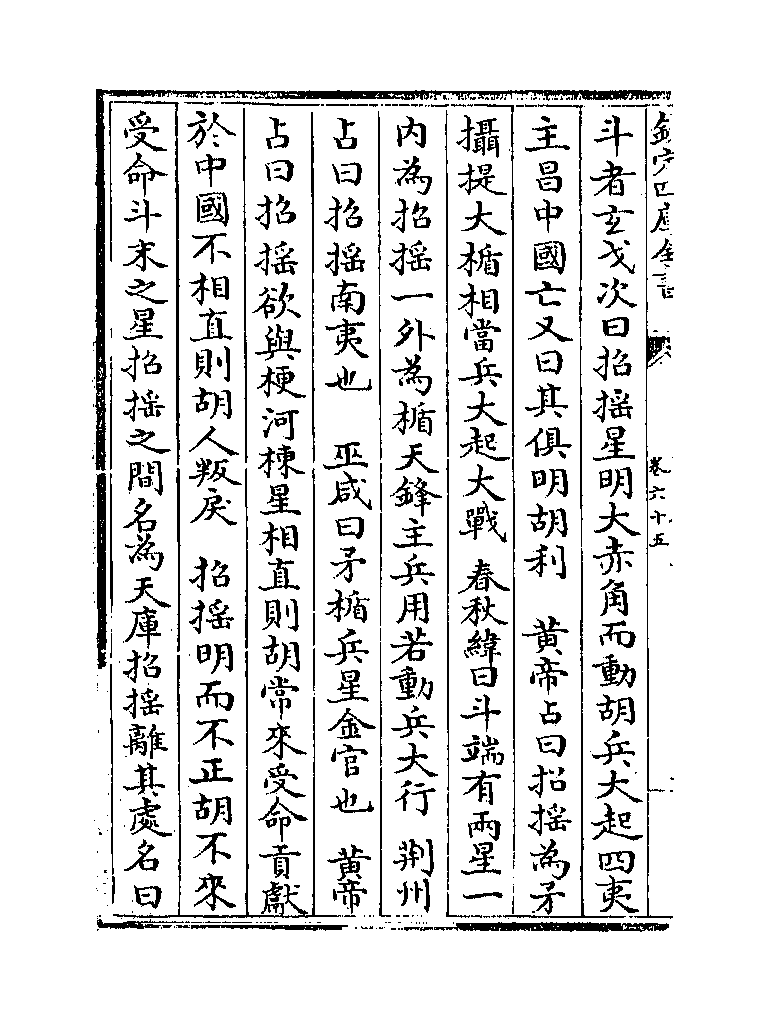 欽定四庫全書
卷六十五
斗者玄戈次曰招揺星明大赤角而動胡兵大起四夷
主昌中國亡又曰其俱明胡利 黄帝占曰招揺為矛
攝提大楯相當兵大起大戰 春秋緯曰斗端有兩星一
内為招揺一外為楯天鋒主兵用若動兵大行 荆州
占曰招揺南夷也 巫咸曰矛楯兵星金官也 黄帝
占曰招揺欲與梗河楝星相直則胡常來受命貢獻
於中國不相直則胡人叛戾 招揺明而不正胡不來
受命斗末之星招揺之間名為天庫招揺離其處名曰